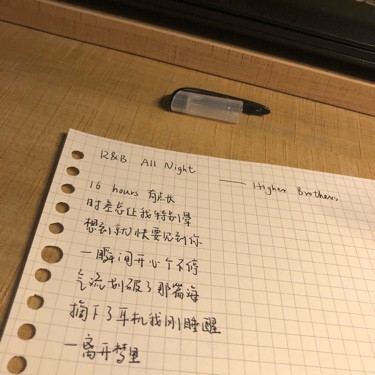 R&B All Night
—— Higher Brothers
16 hours 有点长
时差总让我特别晕
想到就快要见到你
一瞬间开心个不停
气流划破了那篇海
摘下了耳机我刚睡醒
一离开梦里